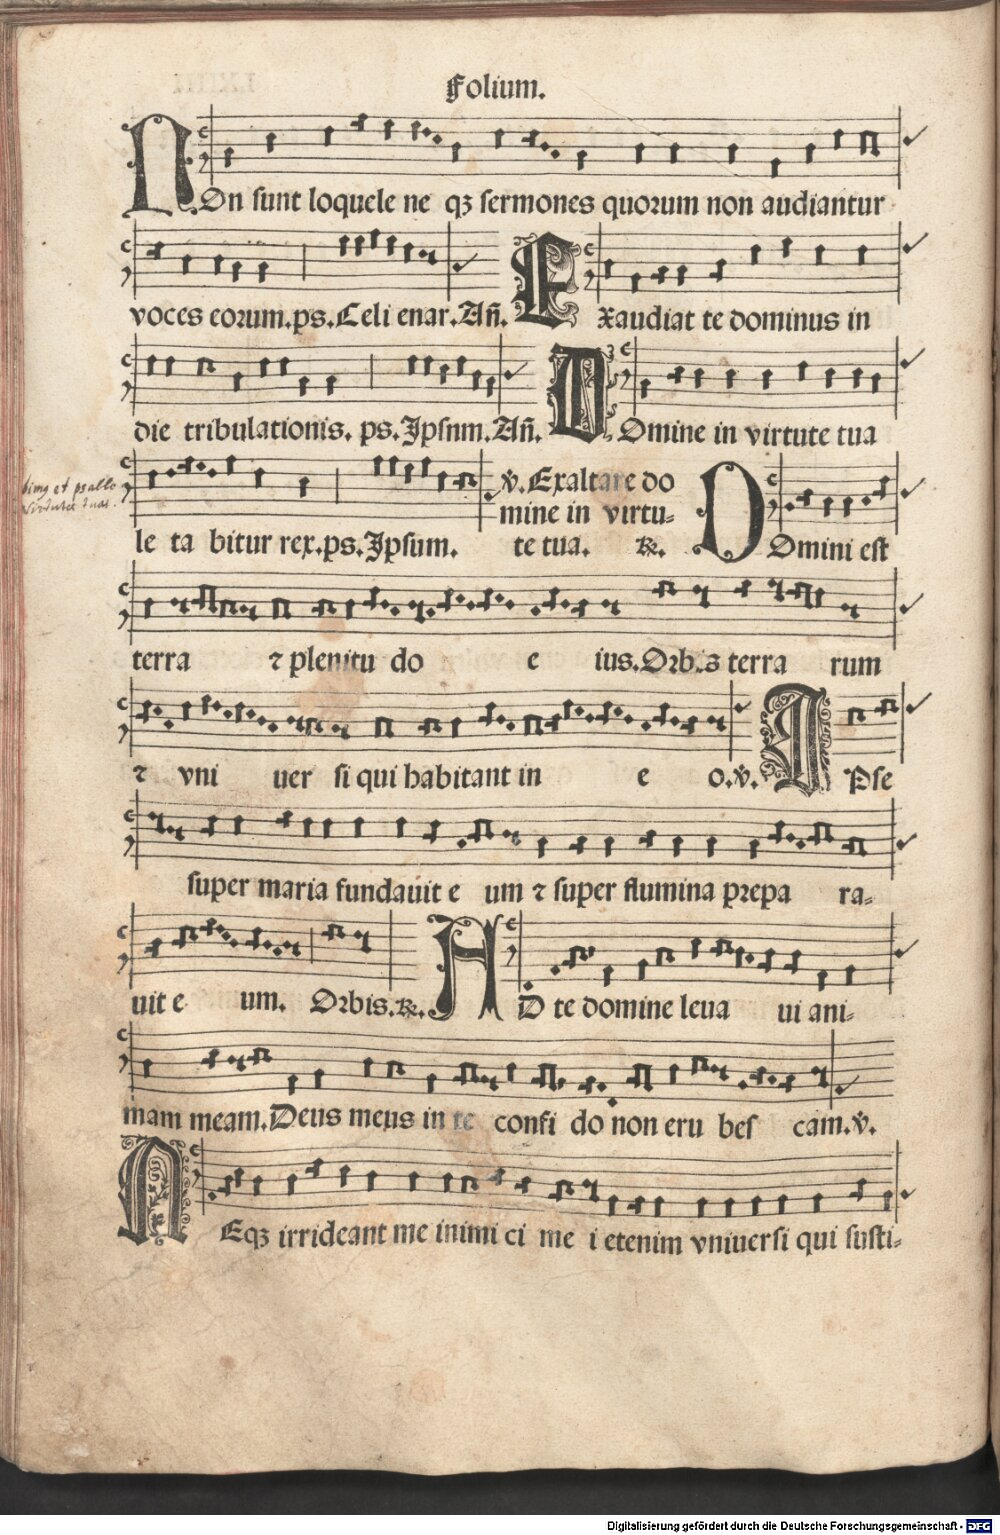 Folium.
NOn sunt loquele ne qꝫ sermones quoꝛum non audiantur
voces eoꝛum.ps.Celi enar.Añ. EXaudiat te dominus in
die tribulationis. ps.Jpsnm.Añ. DOmine in virtute tua
le ta bitur rex.ps.Jpsum. ꝟ.Exaltare do
mine in virtu⸗
te tua. ℞. DOmini est
terra ⁊ plenitu do e ius.Orbis terra rum
⁊ vni uer si qui habitant in e o.ꝟ. IPse
super maria fundauit e um ⁊ super flumina pꝛepa ra⸗
uit e um. Orbis.℞. AD te domine leua ui ani⸗
mam meam.Deus meus in te confi do non eru bes cam.ꝟ.
NEqꝫ irrideant me inimi ci me i etenim vniuersi qui susti⸗
Digitalisierung gefördert durch die Deutsche Forschungsgemeinschaft - DFG